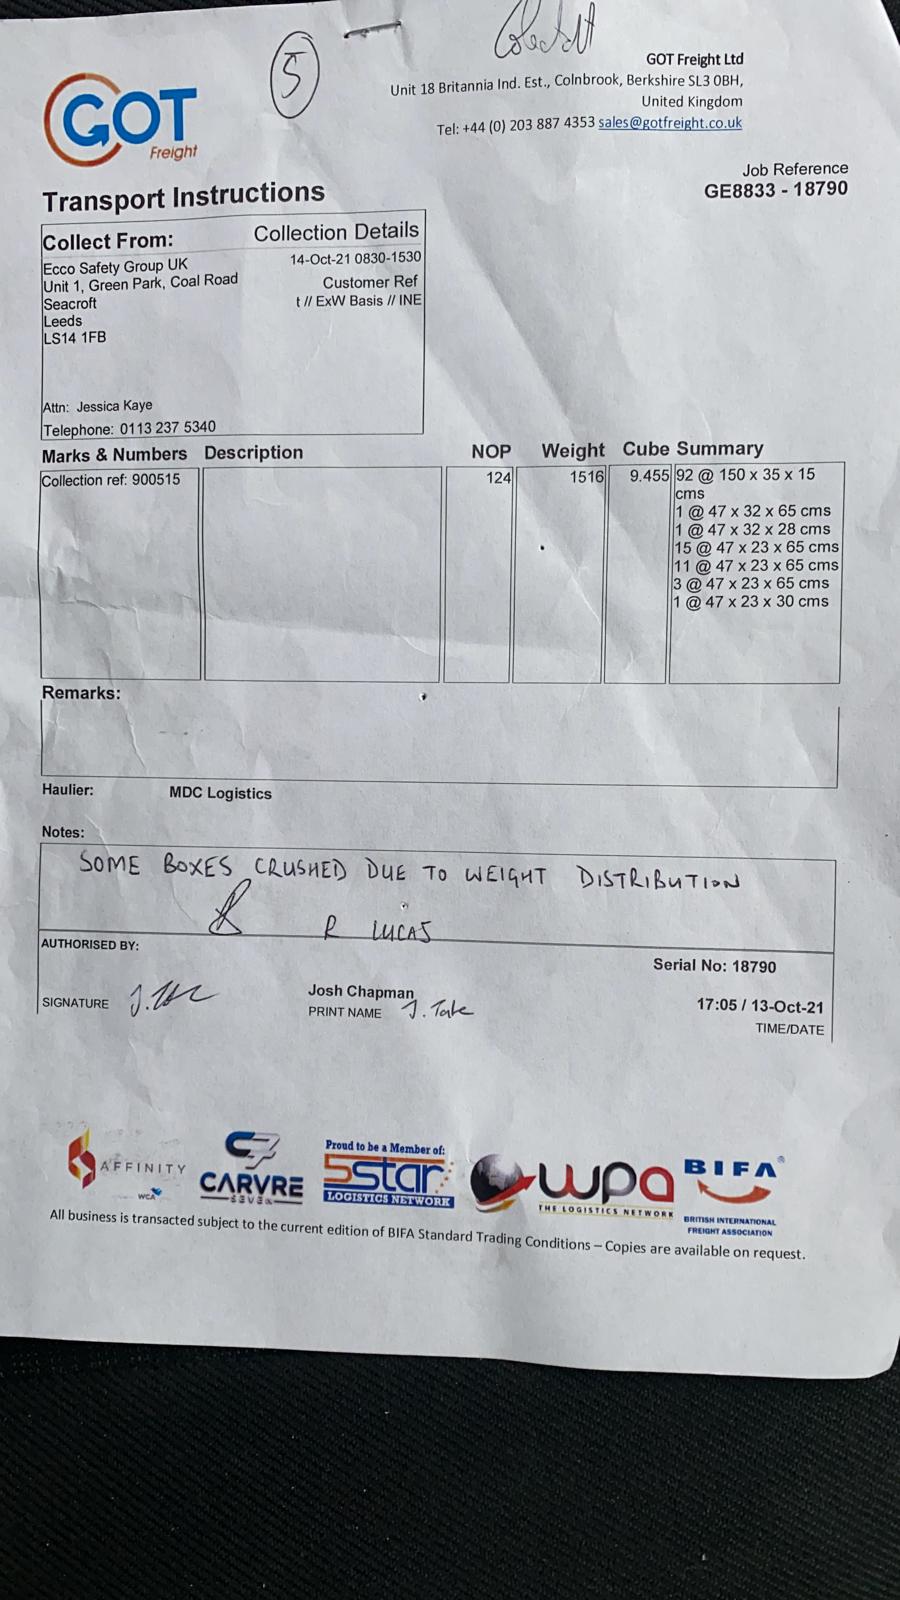 5
GOT
Freight
GOT Freight Ltd
Unit 18 Britannia Ind. Est., Colnbrook, Berkshire SL3 0BH,
United Kingdom
Tel: +44 (0) 203 887 4353 sales@gotfreight.co.uk
Job Reference
GE8833 - 18790
Transport Instructions
Collect From: Collection Details
Ecco Safety Group UK 14-Oct-21 0830-1530
Unit 1, Green Park, Coal Road Customer Ref
Seacroft t // ExW Basis // INE
Leeds
LS14 1FB
Attn: Jessica Kaye
Telephone: 0113 237 5340
Marks & Numbers Description NOP Weight Cube Summary
Collection ref: 900515 124 1516 9.455 92 @ 150 x 35 x 15
cms
1 @ 47 x 32 x 65 cms
1 @ 47 x 32 x 28 cms
15 @ 47 x 23 x 65 cms
11 @ 47 x 23 x 65 cms
3 @ 47 x 23 x 65 cms
1 @ 47 x 23 x 30 cms
Remarks:
Haulier: MDC Logistics
Notes:
SOME BOXES CRUSHED DUE TO WEIGHT DISTRIBUTION
R LUCAS
AUTHORISED BY:
Serial No: 18790
SIGNATURE
Josh Chapman
PRINT NAME J. Tate
17:05 / 13-Oct-21
TIME/DATE
AFFINITY
WCA
CARVRE
SEVEN
Proud to be a Member of:
5star
LOGISTICS NETWORK
wpa
THE LOGISTICS NETWORK
BIFA
BRITISH INTERNATIONAL
FREIGHT ASSOCIATION
All business is transacted subject to the current edition of BIFA Standard Trading Conditions – Copies are available on request.